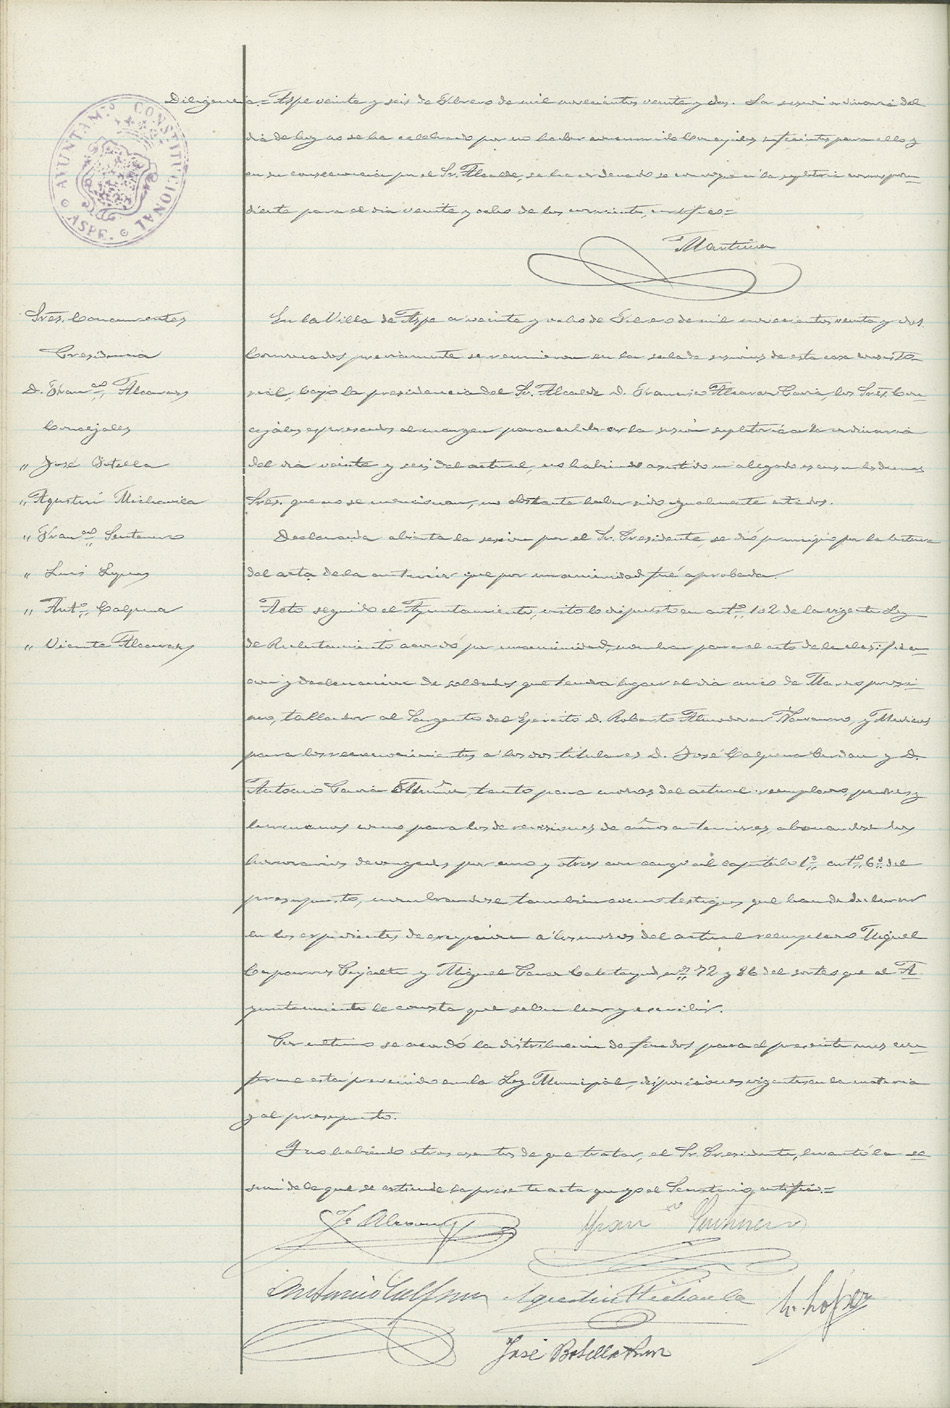 AYUNTAM.º CONSTITUCIONAL
ASPE.
Diligencia.= Aspe veinte y seis de Febrero de mil novecientos veinte y dos. La sesión ordinaria del
día de hoy no se ha celebrado por no haber concurrido Concejales suficientes para ello y
en su consecuencia por el Sr. Alcalde, se ha ordenado se convoque a la supletoria correspon-
diente para el día veinte y ocho de los corrientes, certifico=
Martínez
Sres. Concurrentes
Presidencia
D. Franco. Alcaraz
Concejales
" José Botella
" Agustín Michavila
" Franco. Santonero
" Luis
" Anto. Calpena
" Vicente Alcaraz
En la Villa de Aspe a veinte y ocho de Febrero de mil novecientos veinte y dos.
Convocados previamente se reunieron en la sala de sesiones de esta casa consisto-
rial, bajo la presidencia del Sr. Alcalde D. Francisco Alcaraz, los Sres. Con-
cejales expresados al margen para celebrar la sesión supletoria a la ordinaria
del día veinte y seis del actual, no habiendo asistido ni alegado excusa los demás
Sres. que no se mencionan, no obstante haber sido igualmente citados.
Declarada abierta la sesión por el Sr. Presidente, se dió principio por la lectura
del acta de la anterior que por unanimidad fué aprobada.
Acto seguido el Ayuntamiento, visto lo dispuesto en arto. 102 de la vigente Ley
de Reclutamiento acordó por unanimidad, nombrar para el acto de la clasifica-
ción y declaración de soldados que tendrá lugar el día cinco de Marzo próxi-
mo, tallador al Sargento del Ejército D. Roberto Almodovar Navarro, y Médicos
para los reconocimientos a los dos titulares D. José Calpena Cerdán y D.
Antonio García, tanto para mozos del actual reemplazo, padres y
hermanos como para los de revisiones de años anteriores, abonandose los
honorarios devengados por uno y otros con cargo al capítulo 1º arto. 6º del
presupuesto, nombrandose también como testigos que han de declarar
en los expedientes de excepción a los mozos del actual reemplazo Miguel
y Miguel nos. 72 y 86 del sorteo que al A-
yuntamiento le consta que saben leer y escribir.
Por último se acordó la distribución de fondos para el presente mes con-
forme está prevenido en la Ley Municipal, disposiciones vigentes en la materia
y al presupuesto.
Y no habiendo otros asuntos de que tratar, el Sr. Presidente, levantó la se-
sión de la que se extiende la presente acta que yo el Secretario certifico.=
F. Alcaraz
Fran.co
Antonio Calpena Agustín Michavila L. López
José Botella